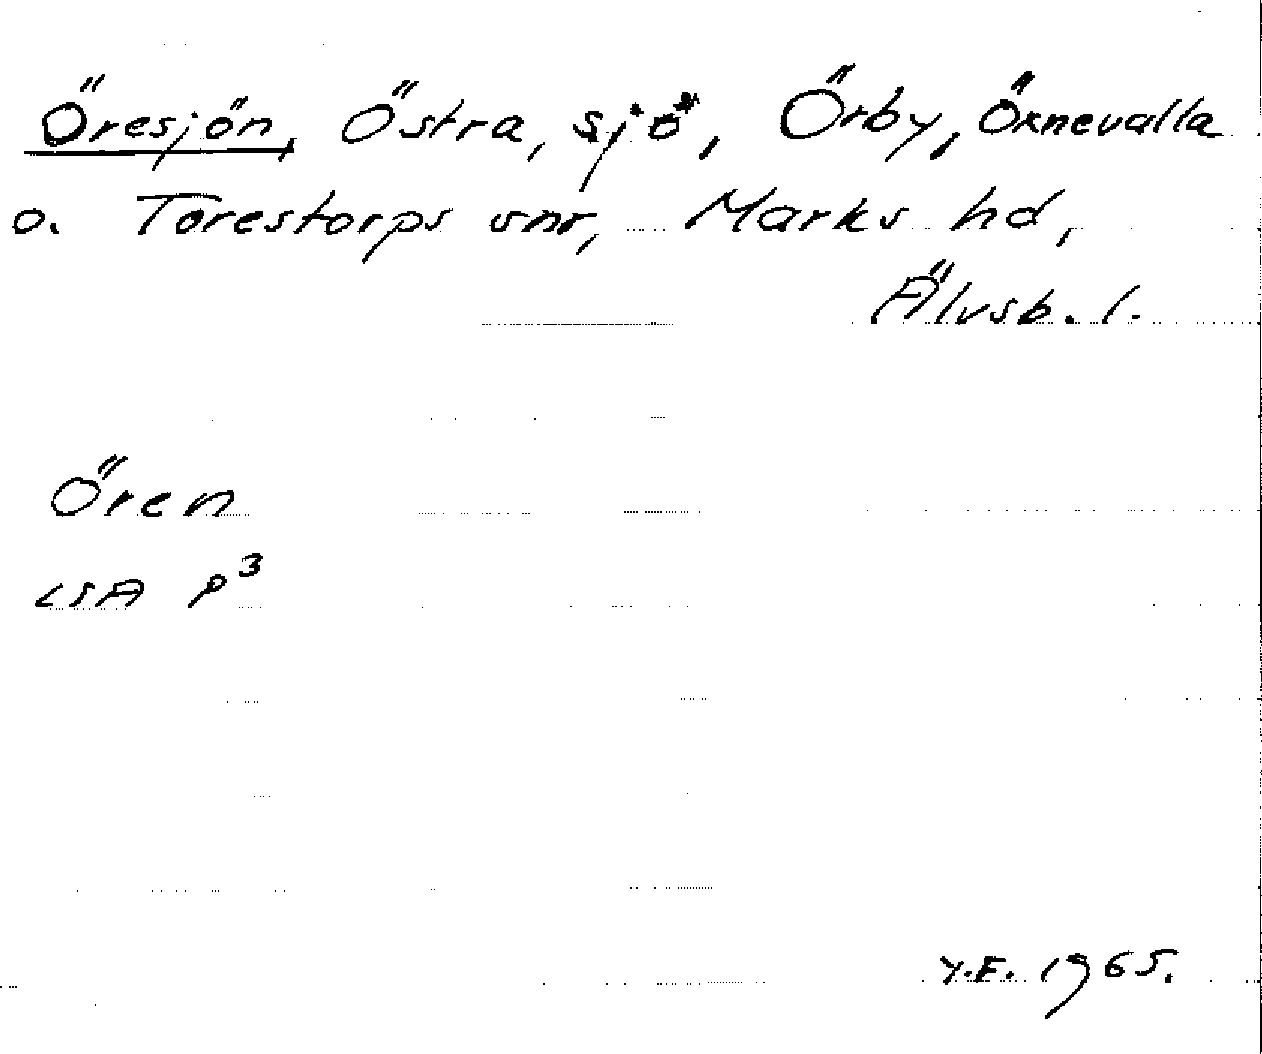 Öresjön, Östra, sjö, Örby, Öxnevalla
o. Torestorps snr, Marks hd,
Älvsb. l.
Ören
LSA P³
Y.E. 1965.